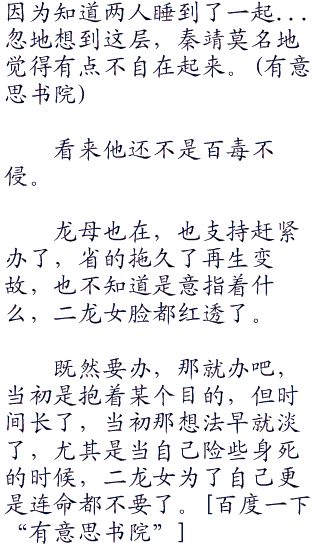 因为知道两人睡到了一起...
忽地想到这层，秦靖莫名地
觉得有点不自在起来。(有意
思书院)
看来他还不是百毒不
侵。
龙母也在，也支持赶紧
办了，省的拖久了再生变
故，也不知道是意指着什
么，二龙女脸都红透了。
既然要办，那就办吧，
当初是抱着某个目的，但时
间长了，当初那想法早就淡
了，尤其是当自己险些身死
的时候，二龙女为了自己更
是连命都不要了。[百度一下
“有意思书院”]